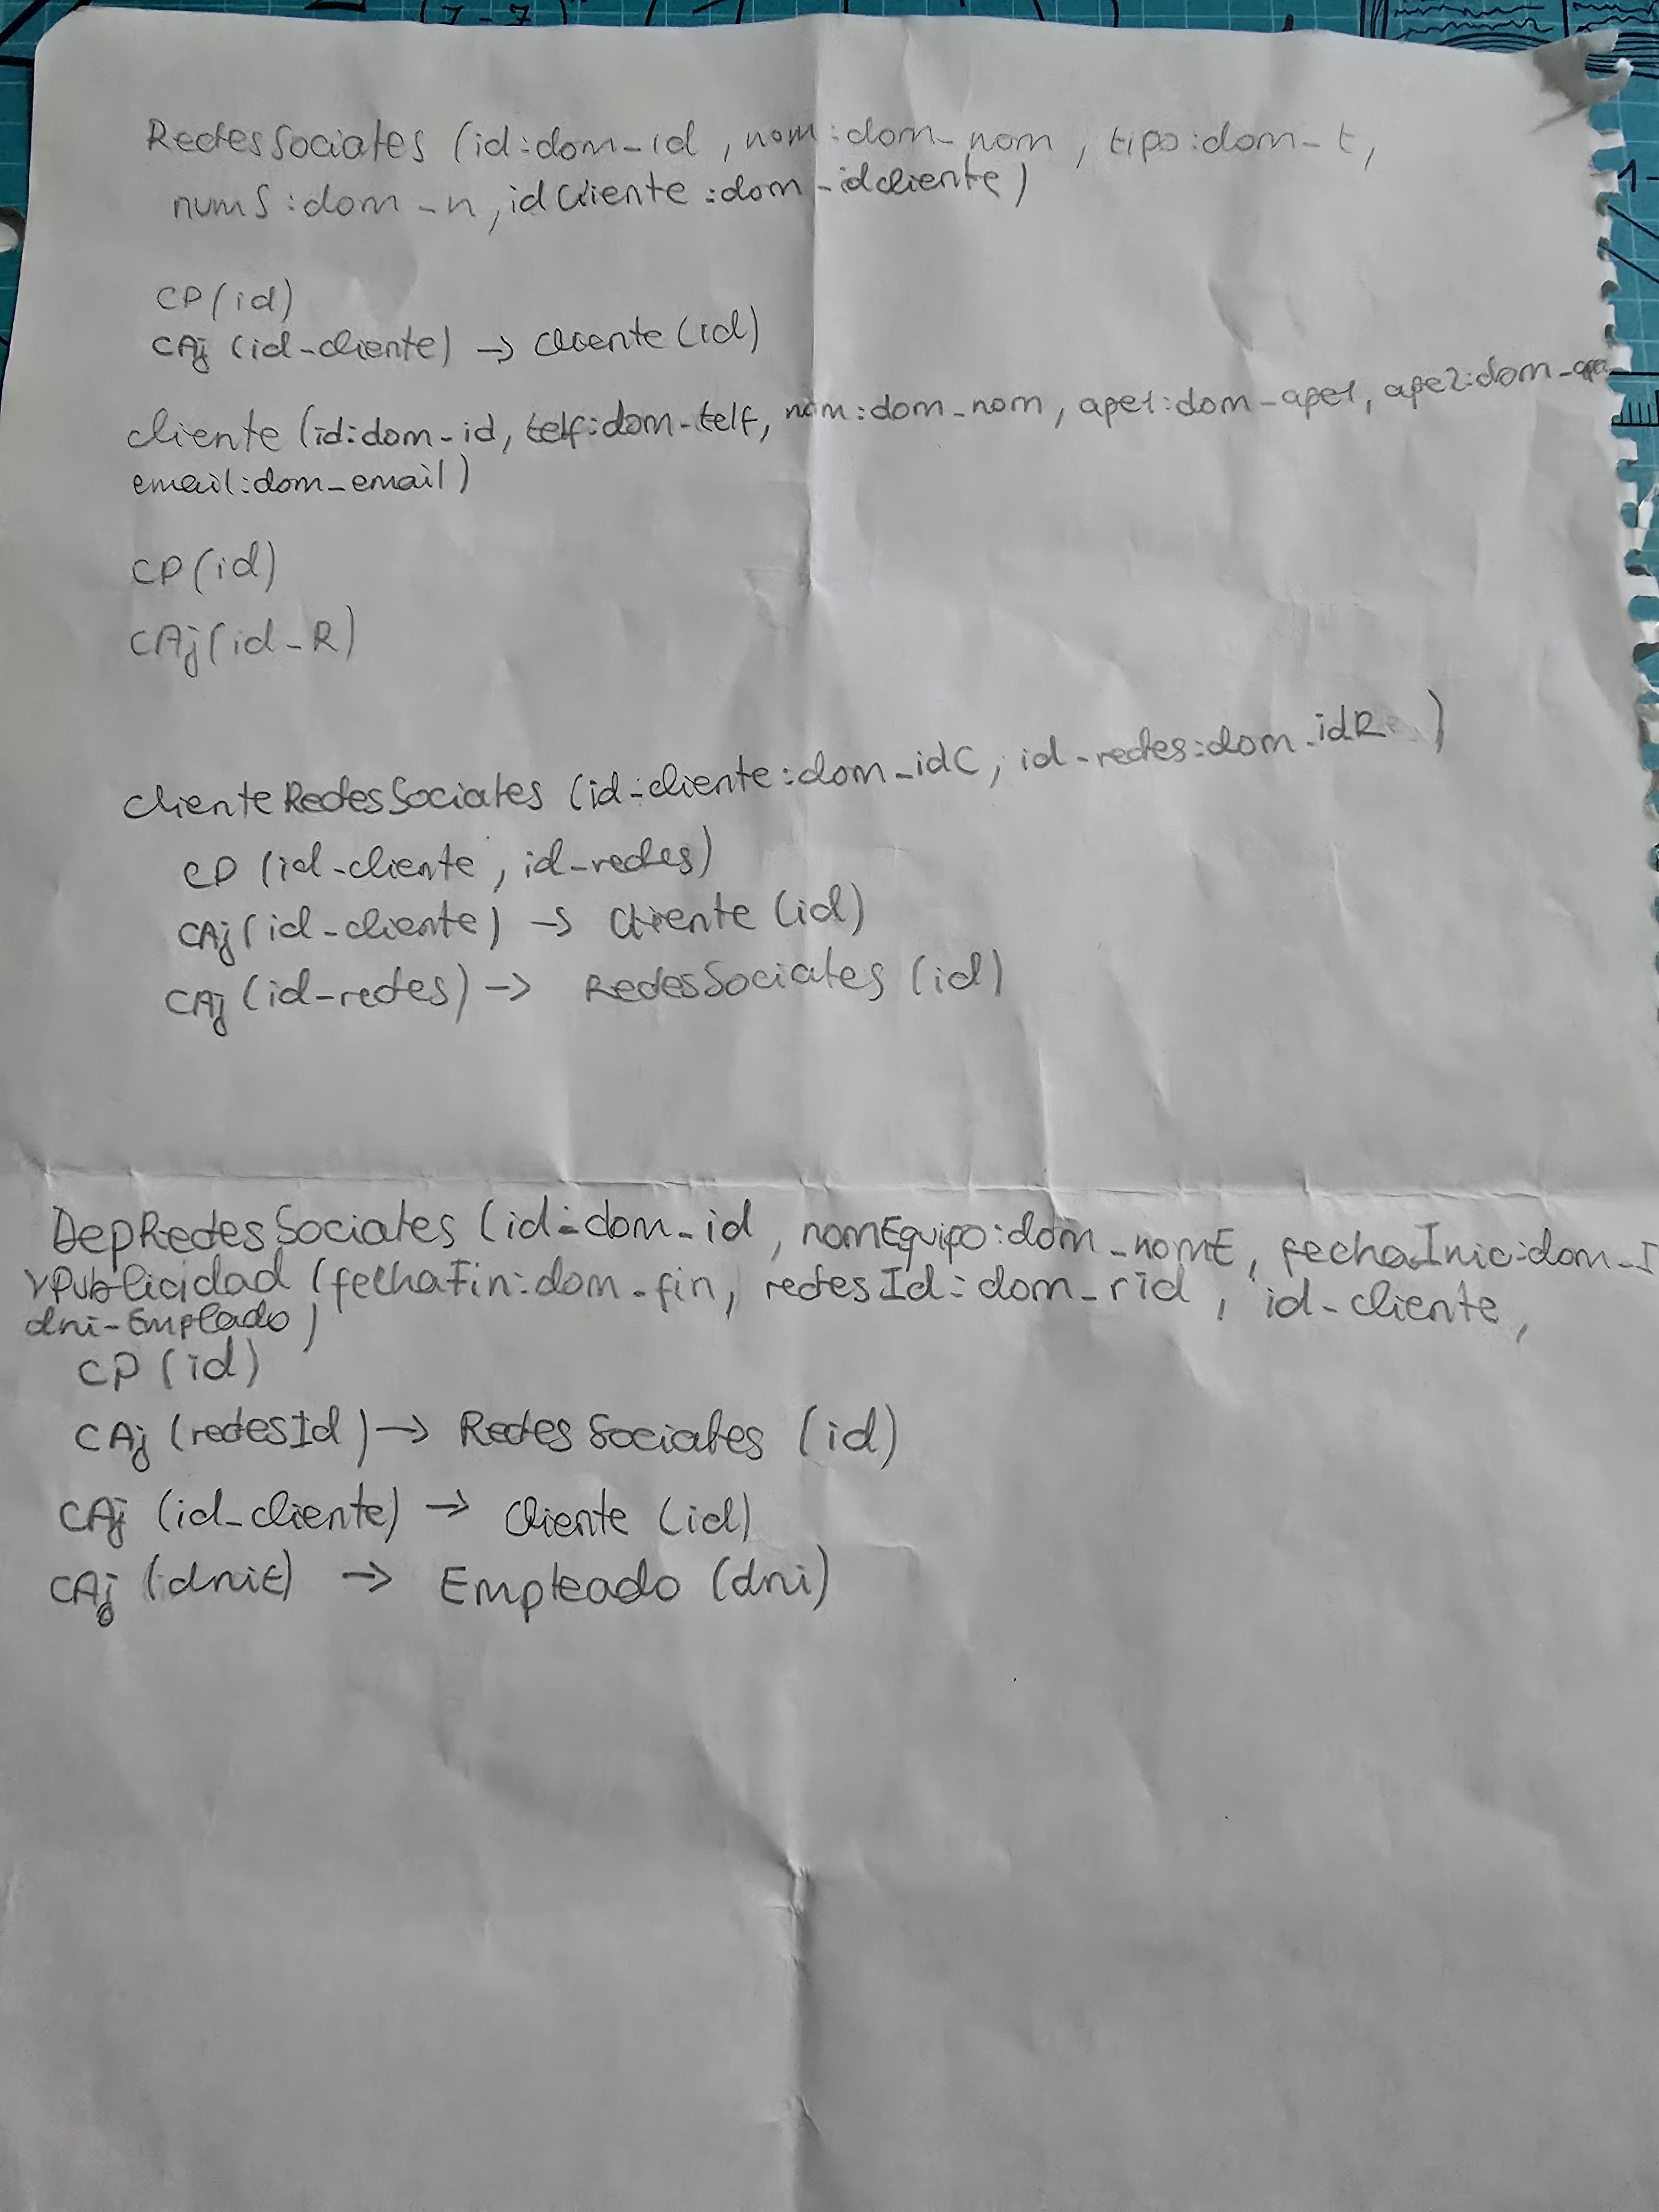 RedesSociales (id:dom_id, nom:dom_nom, tipo:dom_t,
numS:dom_n, idCliente:dom_idcliente)
CP(id)
CAj (id-cliente) → Cliente (id)
cliente (id:dom_id, telf:dom_telf, nom:dom_nom, ape1:dom_ape1, ape2:dom_ape
email:dom_email)
CP(id)
CAj(id_R)
clienteRedesSociales (id-cliente:dom_idC, id-redes:dom_idR)
CP (id-cliente, id-redes)
CAj(id-cliente) → Cliente (id)
CAj (id-redes) → RedesSociales (id)
DepRedesSociales (id:dom_id, nomEquipo:dom_nomE, fechaInic:dom_I
yPublicidad (fechaFin:dom_fin, redesId:dom_rid, id-cliente,
dni-Emplado)
CP (id)
CAj (redesId) → RedesSociales (id)
CAj (id_cliente) → Cliente (id)
CAj (dniE) → Empleado (dni)